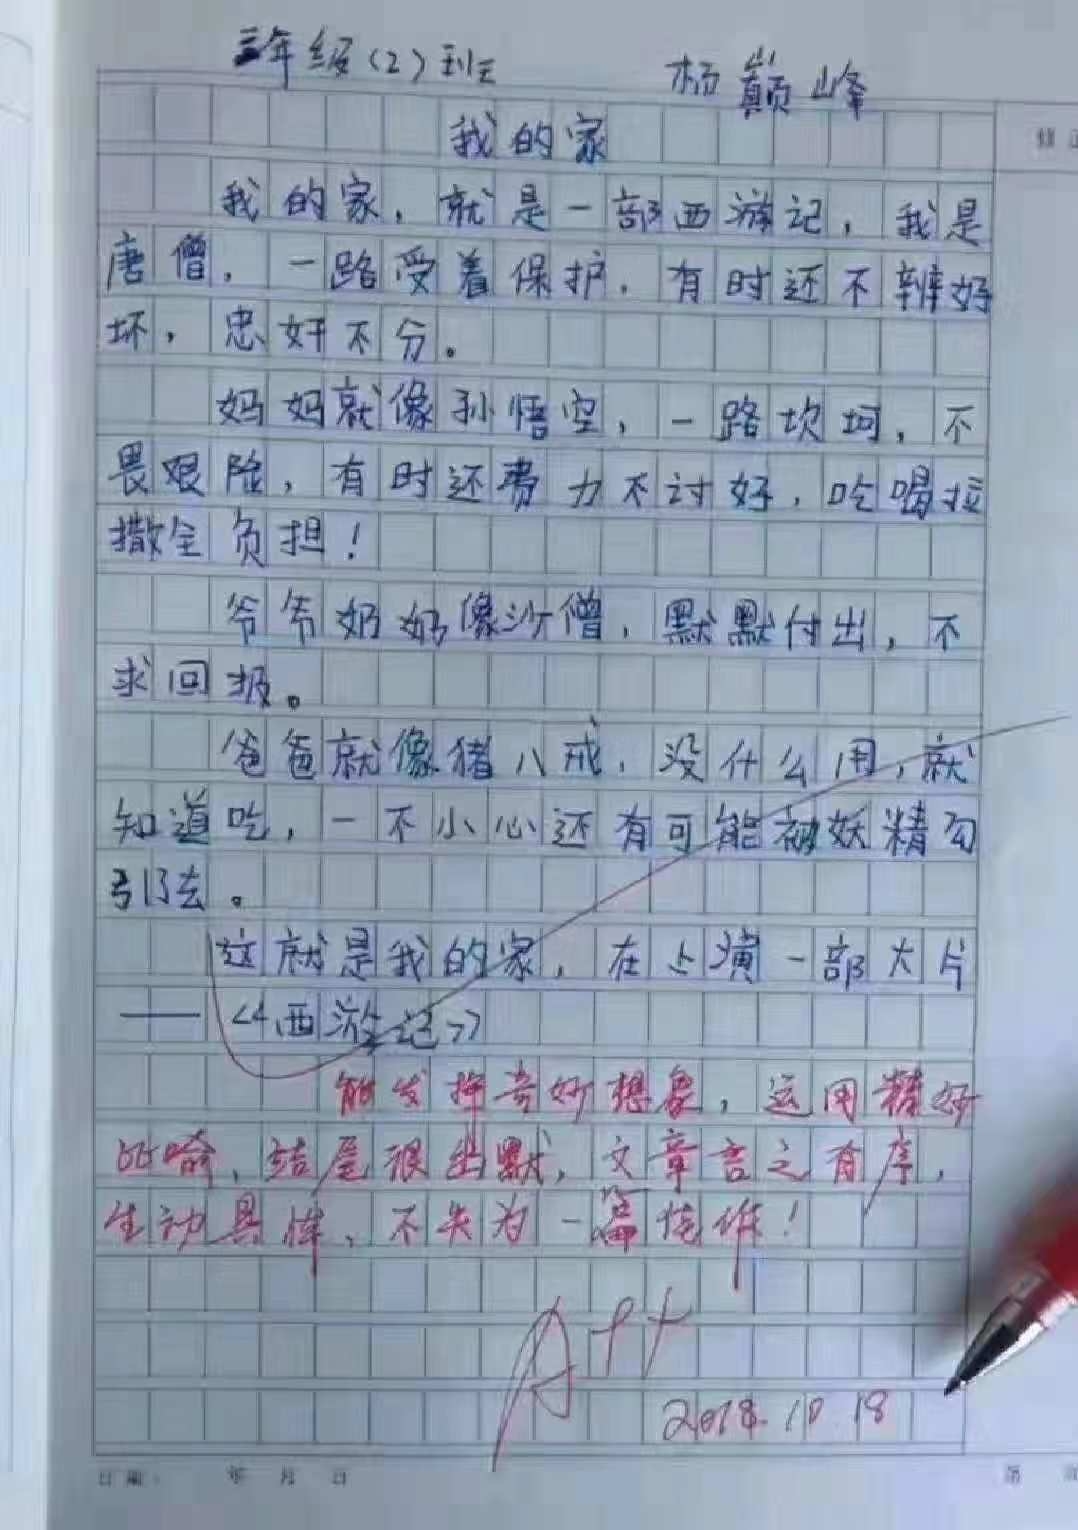 三年级(2)班 杨巅峰
修正
我的家
我的家，就是一部西游记，我是
唐僧，一路受着保护，有时还不辨好
坏，忠奸不分。
妈妈就像孙悟空，一路坎坷，不
畏艰险，有时还费力不讨好，吃喝拉
撒全负担！
爷爷奶奶像沙僧，默默付出，不
求回报。
爸爸就像猪八戒，没什么用，就
知道吃，一不小心还有可能被妖精勾
引去。
这就是我的家，在上演一部大片
——《西游记》
能发挥奇妙想象，运用精妙
比喻，结尾很幽默，文章言之有序，
生动具体，不失为一篇佳作！
A++
2018.10.18
日期： 年 月 日 第